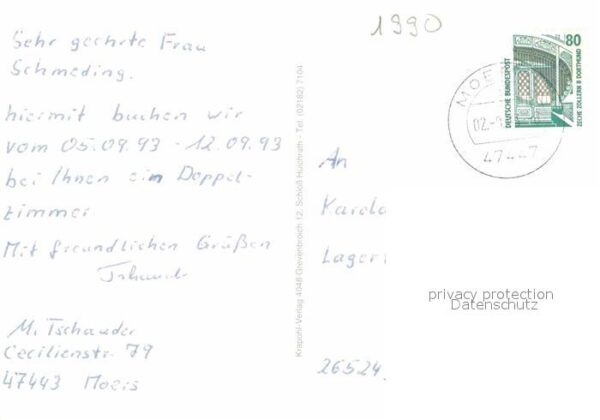 Sehr geehrte Frau
Schmeding,
hiermit buchen wir
vom 05.09.93 - 12.09.93
bei Ihnen ein Doppel-
zimmer
Mit freundlichen Grüßen
M. Tschauder
Cecilienstr. 79
47443 Moers
Krapohl-Verlag 4048 Grevenbroich 12, Schloß Hülchrath - Tel. (02182) 7104
1990
80
DEUTSCHE BUNDESPOST
ZECHE ZOLLERN II DORTMUND
MOE
02.
47447
An
Karola
Lager
26524
privacy protection
Datenschutz